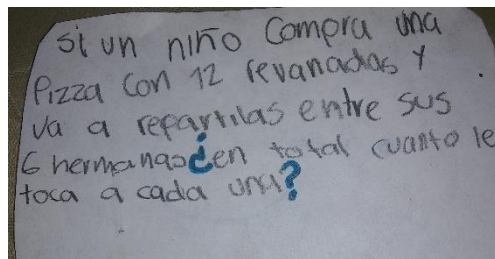 si un niño Compra una
Pizza Con 12 revanadas y
va a repartilas entre sus
6 hermanas ¿en total cuanto le
toca a cada una?